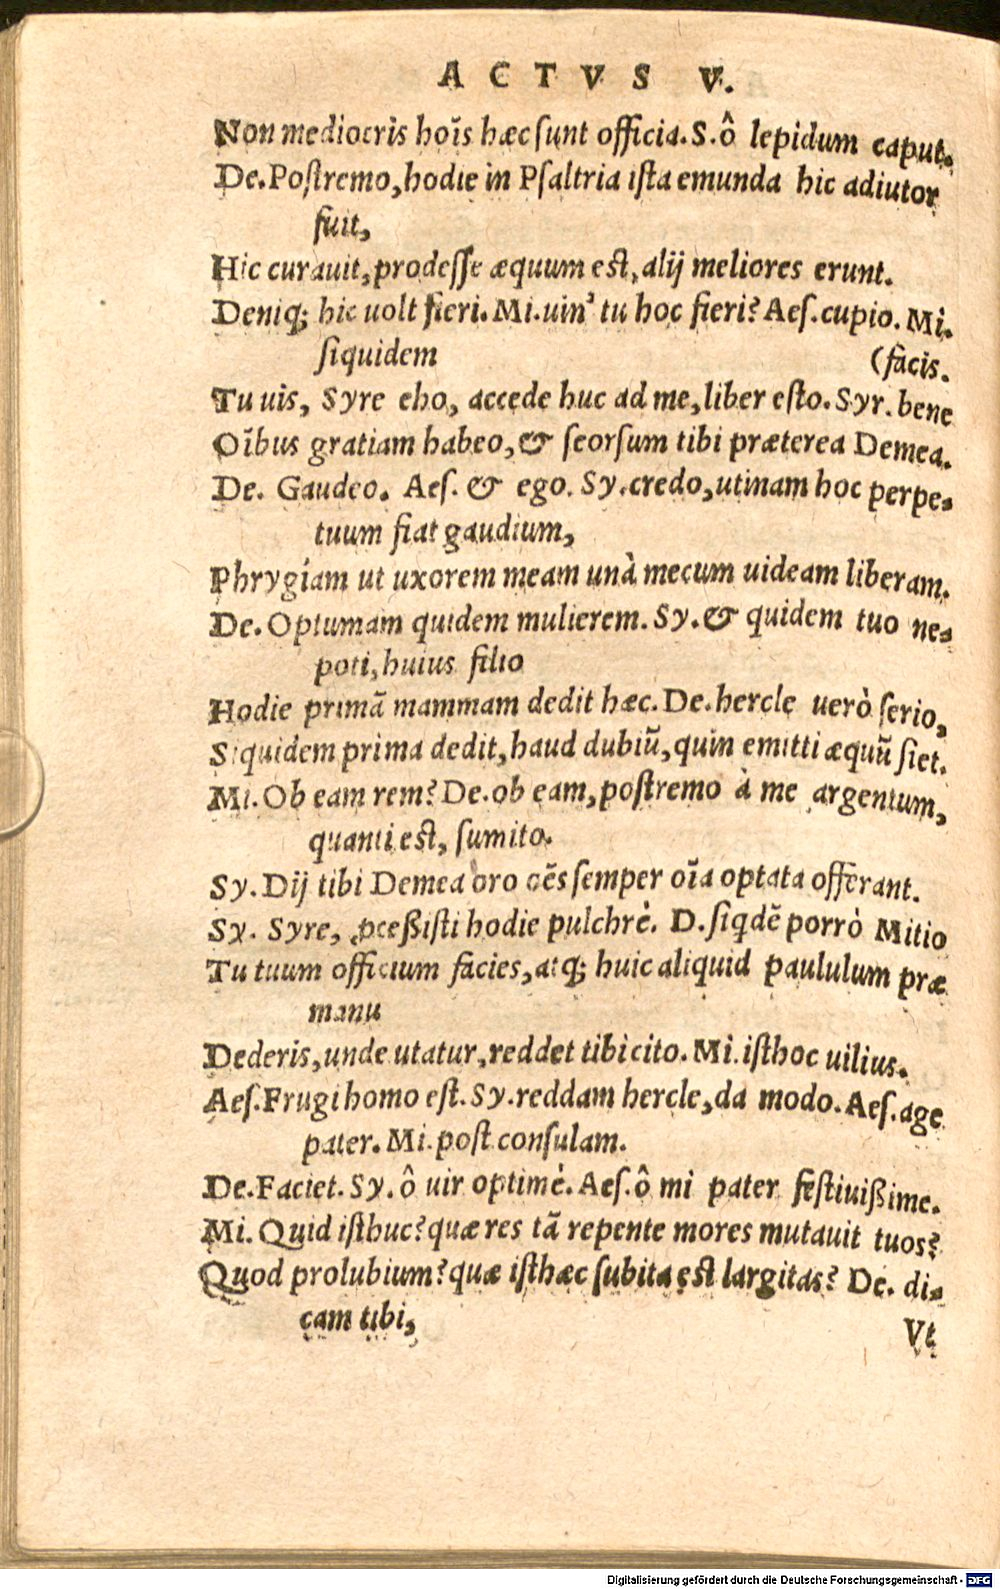 ACTVS V.
Non mediocris hoīs hæc sunt officia. S. ô lepidum caput.
De. Postremo, hodie in Psaltria ista emunda hic adiutor
fuit,
Hic curauit, prodesse æquum est, alij meliores erunt.
Deniq; hic uolt fieri. Mi. uin' tu hoc fieri? Aes. cupio. Mi.
siquidem (facis.
Tu uis, Syre eho, accede huc ad me, liber esto. Syr. bene
Oībus gratiam habeo, & seorsum tibi præterea Demea.
De. Gaudeo. Aes. & ego. Sy. credo, utinam hoc perpe-
tuum fiat gaudium,
Phrygiam ut uxorem meam unà mecum uideam liberam.
De. Optumam quidem mulierem. Sy. & quidem tuo ne-
poti, huius filio
Hodie primā mammam dedit hæc. De. hercle uerò serio,
Siquidem prima dedit, haud dubiū, quin emitti æquū siet.
Mi. Ob eam rem? De. ob eam, postremo à me argentum,
quanti est, sumito.
Sy. Dij tibi Demea oro oēs semper oīa optata offerant.
Sy. Syre, ꝓceßisti hodie pulchrè. D. siqdē porrò Mitio
Tu tuum officium facies, atq; huic aliquid paululum præ
manu
Dederis, unde utatur, reddet tibi cito. Mi. isthoc uilius.
Aes. Frugi homo est. Sy. reddam hercle, da modo. Aes. age
pater. Mi. post consulam.
De. Faciet. Sy. ô uir optimè. Aes. ô mi pater festiuißime.
Mi. Quid isthuc? quæ res tā repente mores mutauit tuos?
Quod prolubium? quæ isthæc subita est largitas? De. di-
cam tibi,
Vt
Digitalisierung gefördert durch die Deutsche Forschungsgemeinschaft - DFG